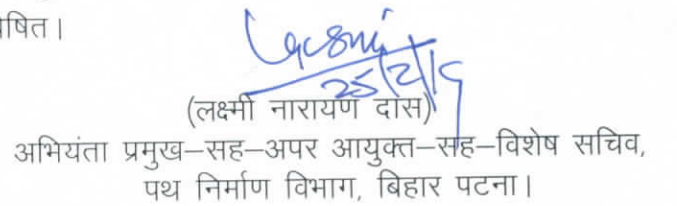 षित।
25/2/19
(लक्ष्मी नारायण दास)
अभियंता प्रमुख–सह–अपर आयुक्त–सह–विशेष सचिव,
पथ निर्माण विभाग, बिहार पटना।